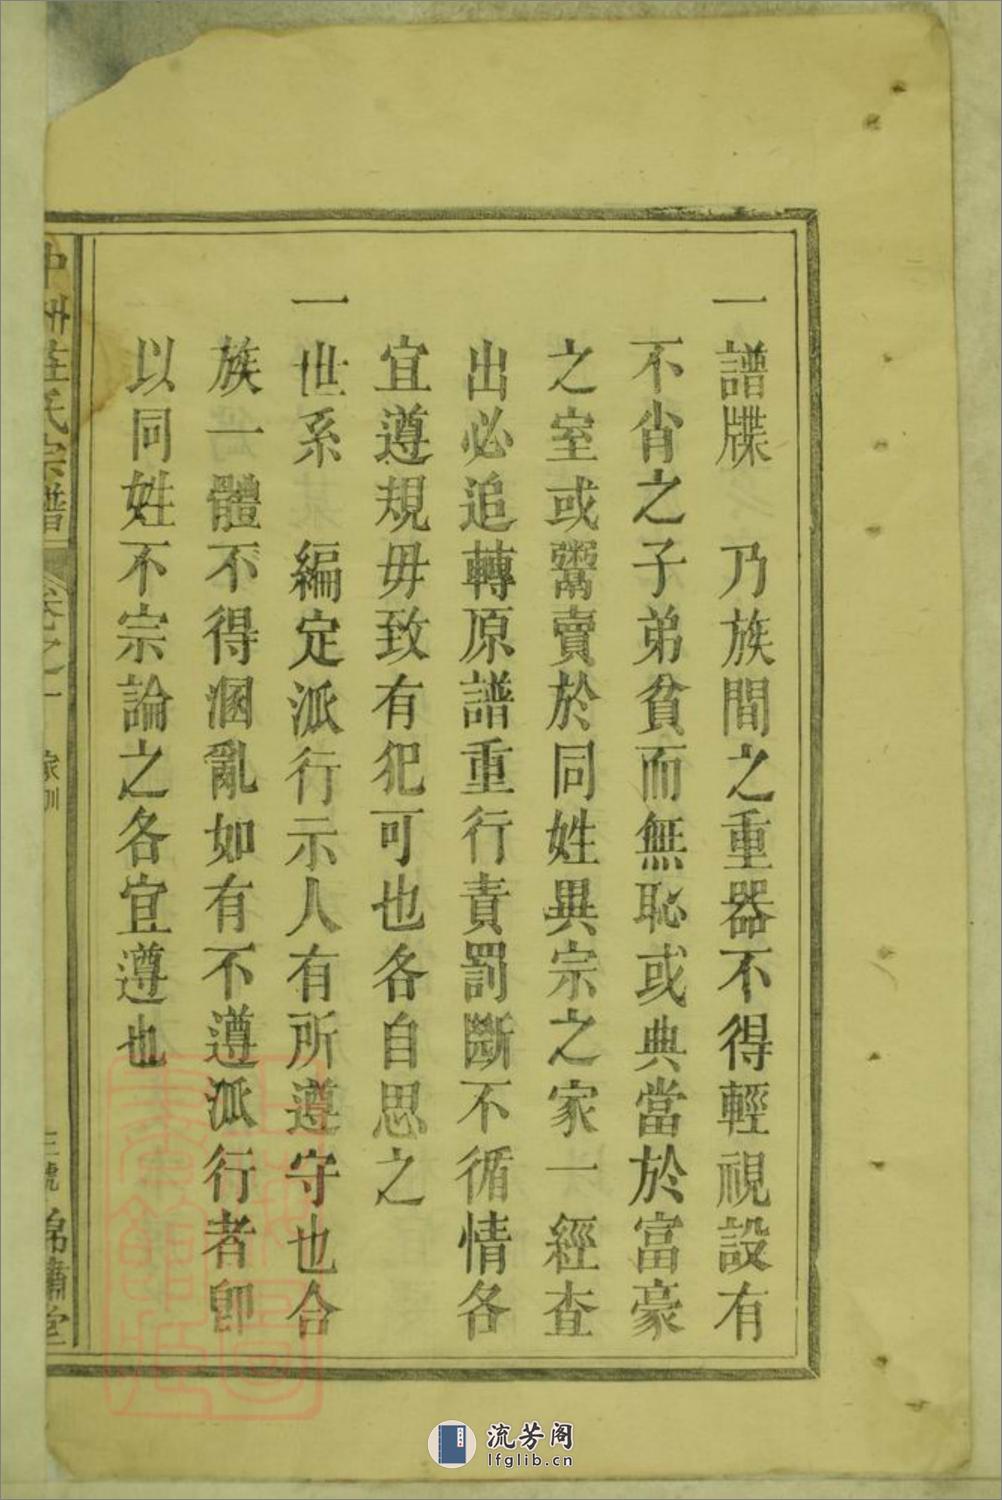 一譜牒　乃族間之重器不得輕視設有
不肖之子弟貧而無恥或典當於富豪
之室或鬻賣於同姓異宗之家一經查
出必追轉原譜重行責罰斷不循情各
宜遵規毋致有犯可也各自思之
一世系　編定派行示人有所遵守也合
族一體不得溷亂如有不遵派行者卽
以同姓不宗論之各宜遵也
中州莊氏宗譜
卷之一
家訓
錦繡堂
流芳阁
lfglib.cn